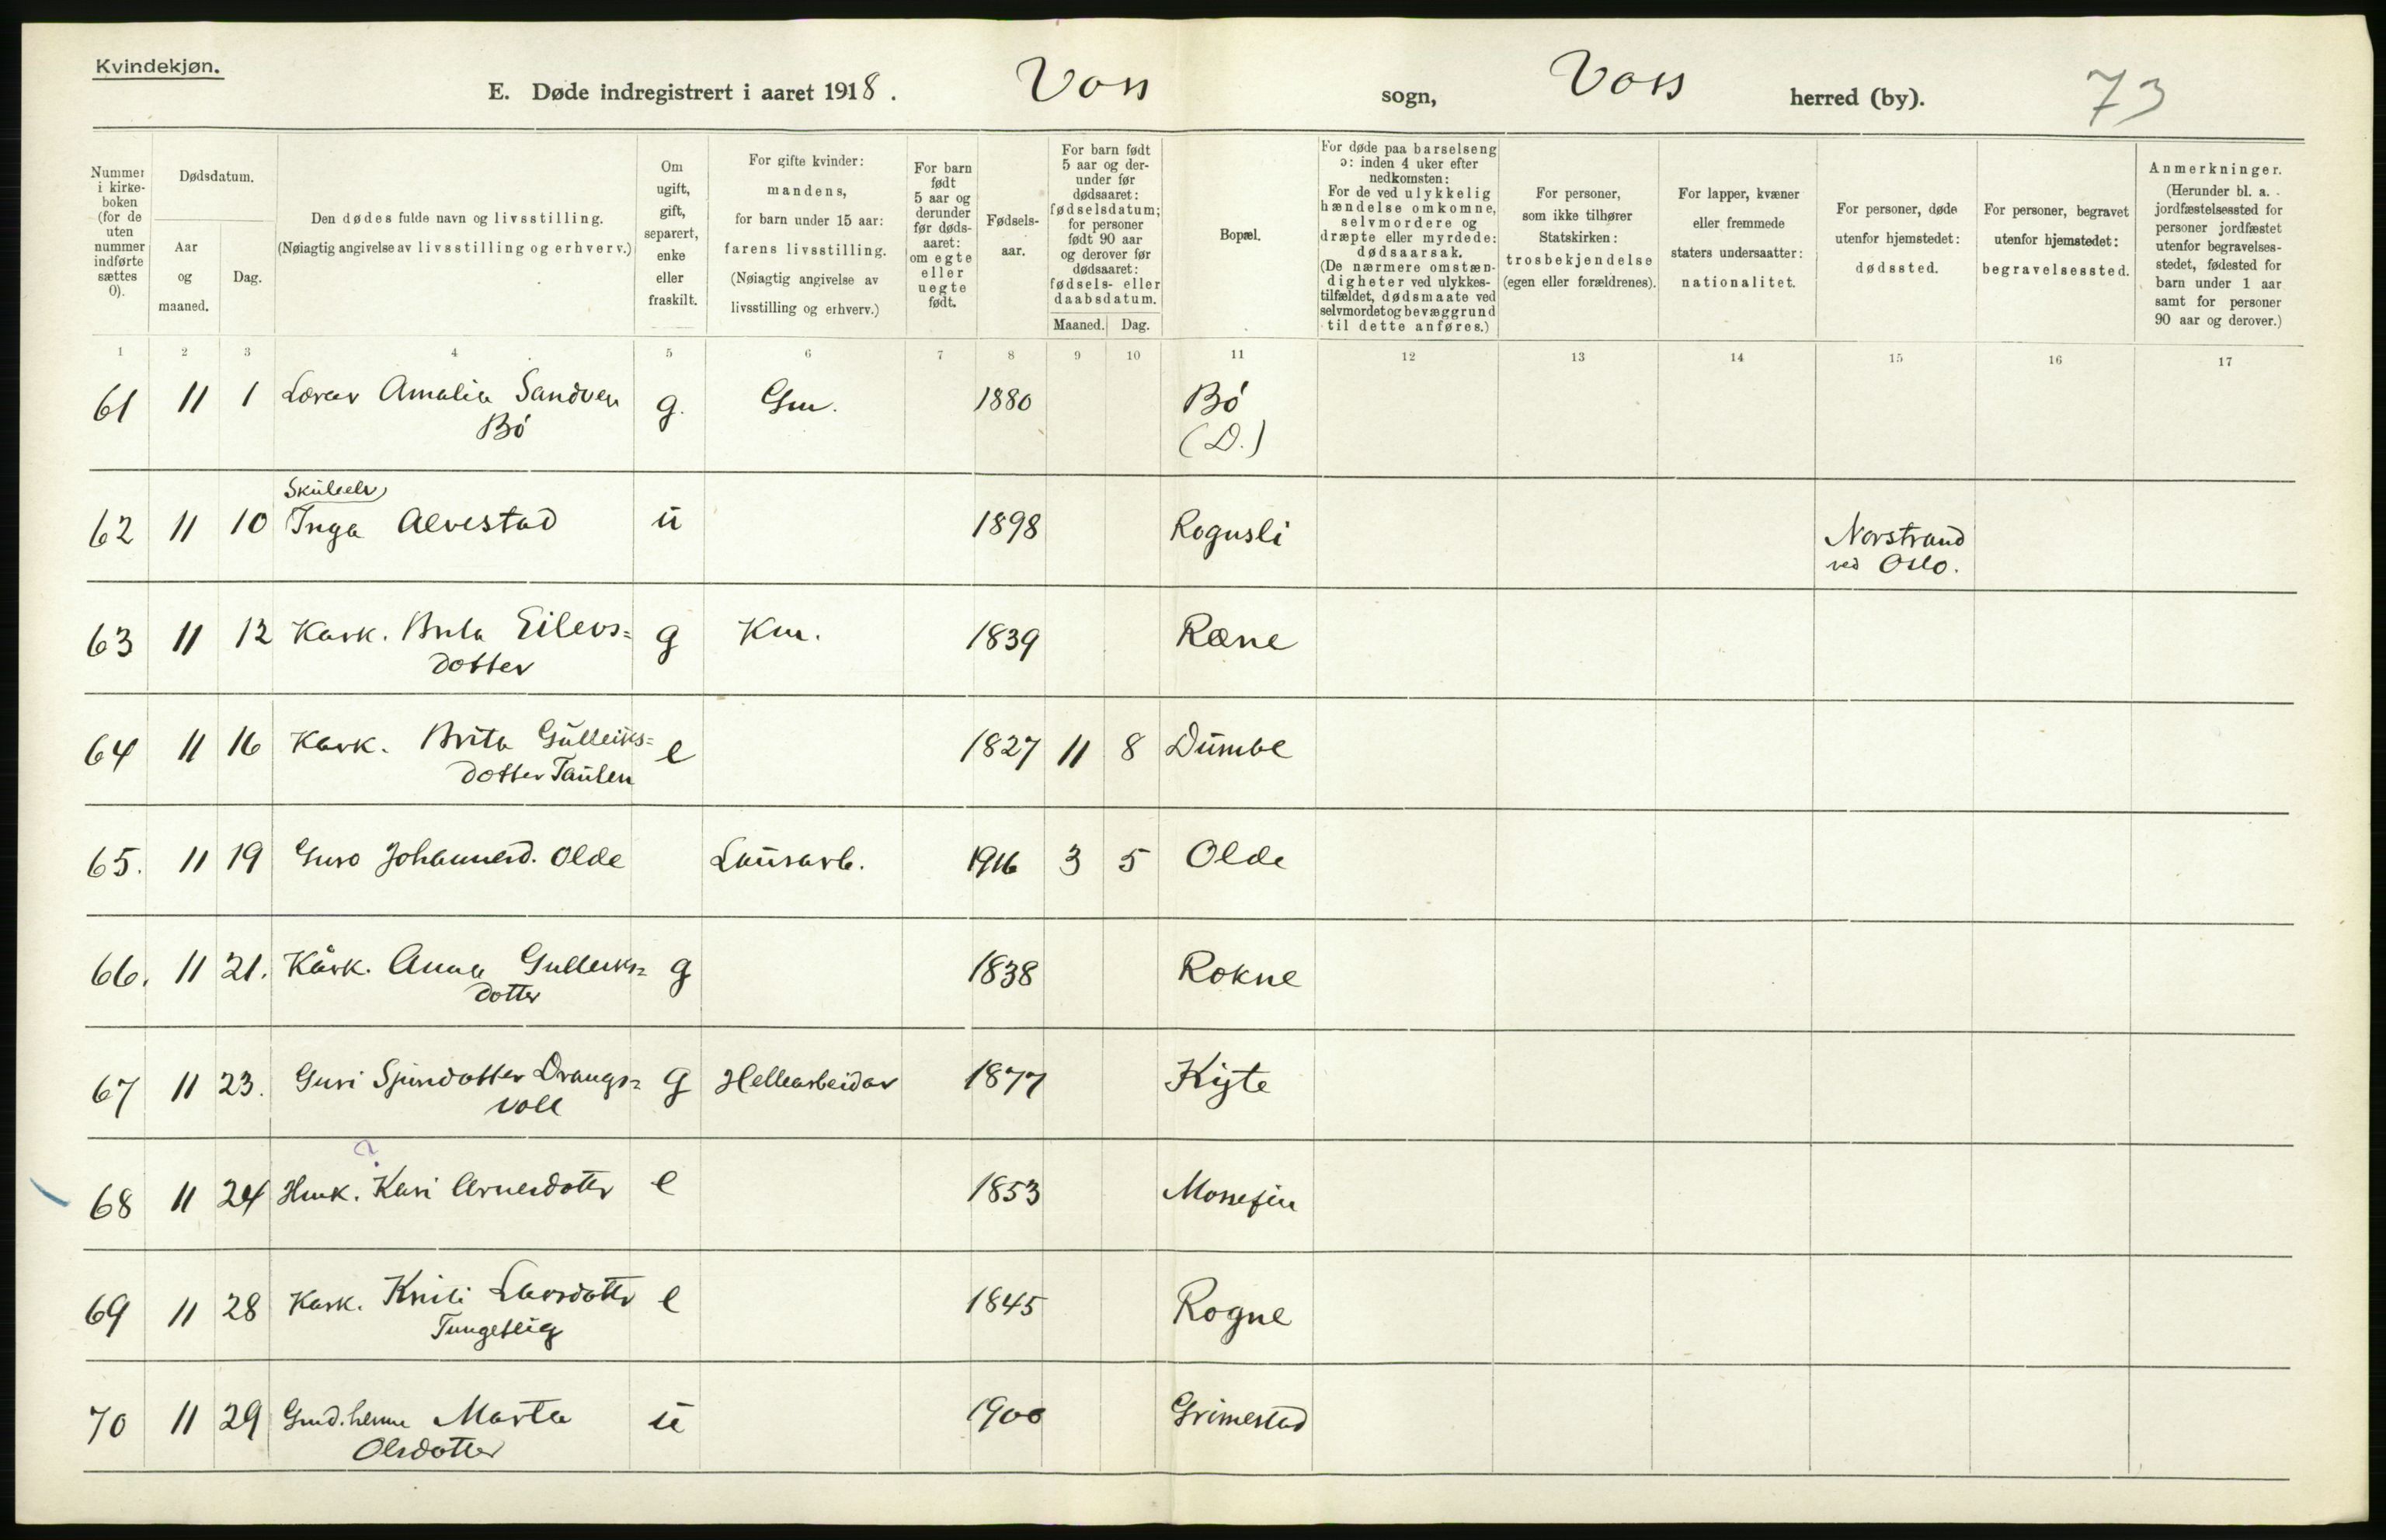 Kvindekjøn.
E. Døde indregistrert i aaret 1918. Voss sogn, Voss herred (by). 73
Nummer i kirkeboken (for de uten nummer indførte sættes 0).
Dødsdatum.
Aar og maaned.
Dag.
Den dødes fulde navn og livsstilling.
(Nøiagtig angivelse av livsstilling og erhverv.)
Om ugift, gift, separert, enke eller fraskilt.
For gifte kvinder: mandens, for barn under 15 aar: farens livsstilling. (Nøiagtig angivelse av livsstilling og erhverv.)
For barn født 5 aar og derunder før dødsaaret: om egte eller uegte født.
Fødselsaar.
For barn født 5 aar og derunder før dødsaaret: fødselsdatum; for personer født 90 aar og derover før dødsaaret: fødsels- eller daabsdatum.
Maaned. Dag.
Bopæl.
For døde paa barselseng ɔ: inden 4 uker efter nedkomsten: For de ved ulykkelig hændelse omkomne, selvmordere og dræpte eller myrdede: dødsaarsak. (De nærmere omstændigheter ved ulykkestilfældet, dødsmaate ved selvmordet og bevæggrund til dette anføres.)
For personer, som ikke tilhører Statskirken: trosbekjendelse (egen eller forældrenes).
For lapper, kvæner eller fremmede staters undersaatter: nationalitet.
For personer, døde utenfor hjemstedet: dødssted.
For personer, begravet utenfor hjemstedet: begravelsessted.
Anmerkninger. (Herunder bl. a. jordfæstelsessted for personer jordfæstet utenfor begravelsesstedet, fødested for barn under 1 aar samt for personer 90 aar og derover.)
1 2 3 4 5 6 7 8 9 10 11 12 13 14 15 16 17
61 11 1 Lærar Amalia Sandven g. Gm. 1880 Bó
Bó (D.)
Skuleelv
62 11 10 Inga Alvestad ŭ 1898 Rogusli Norstrand
ved Oslo.
63 11 12 Kark. Brita Eilevs= g Km. 1839 Ræne
dotter
64 11 16 Kark. Brita Gŭlleiks= e 1827 11 8 Dŭmbe
dotter Taŭlen
65. 11 19 Guro Johannesd. Olde Laŭsarb. 1916 3 5 Olde
66. 11 21. Kårk. Anna Gulleiks= g 1838 Rokne
dotter
67 11 23. Guri Sjŭrdotter Drangs= g Hellearbeidar 1877 Kyte
voll
?
68 11 24 Hmk. Kari Arnesdotter e 1853 Mossefin
69 11 28 Kark. Larsdotter e 1845 Rogne
70 11 29 Gmd. Marta ŭ 1900 Grimestad
Olsdotter